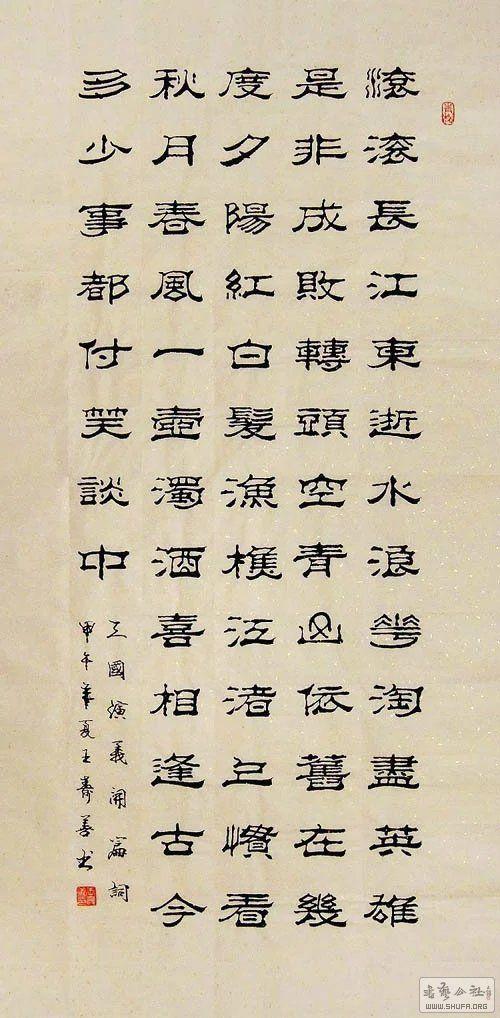 滾滾長江東逝水浪花淘盡英雄
是非成敗轉頭空青山依舊在幾
度夕陽紅白髮漁樵江渚上慣看
秋月春風一壺濁酒喜相逢古今
多少事都付笑談中
三國演義開篇詞
甲午年夏王壽善书
书艺公社
WWW.SHUFA.ORG